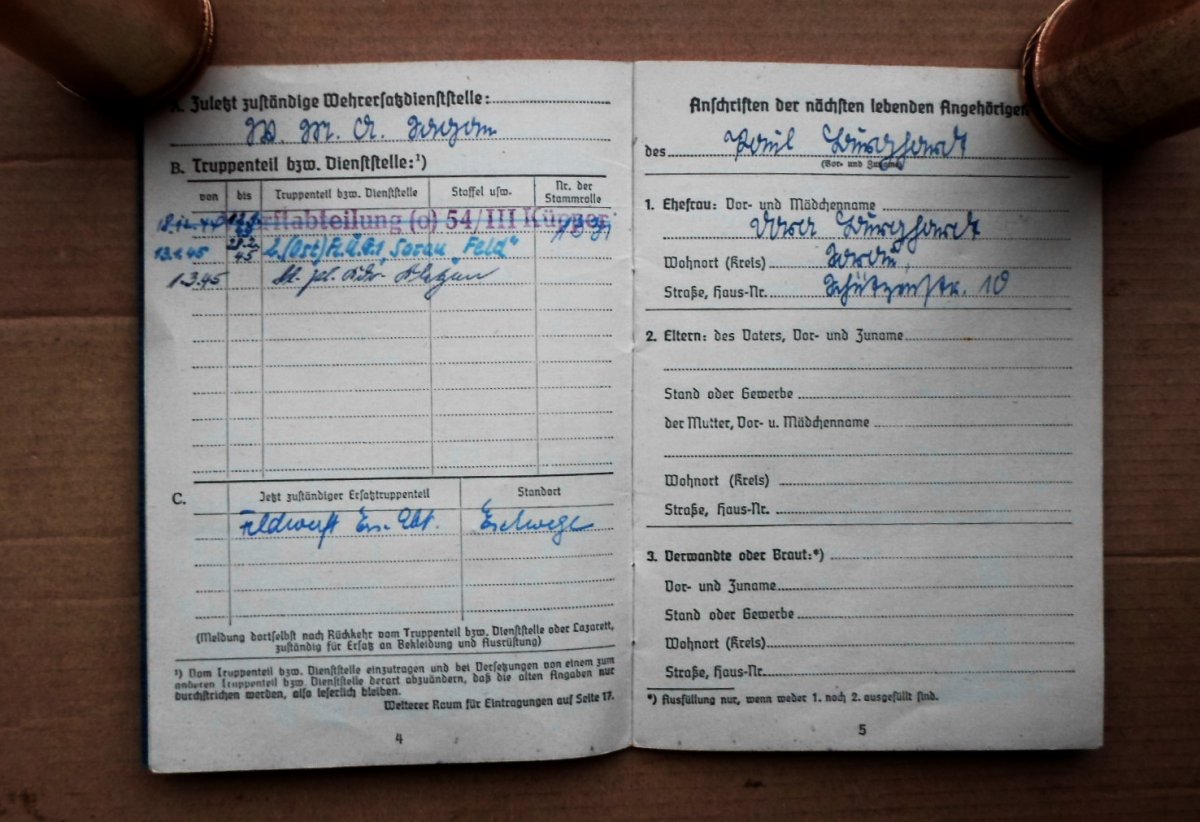 A. Zuletzt zuständige Wehrersatzdienststelle:
W. M. A. Sagan
B. Truppenteil bzw. Dienststelle:¹)
von bis Truppenteil bzw. Dienststelle Staffel usw. Nr. der Stammrolle
18.12.44 Werftabteilung (o) 54/III Küpper
13.1.45 28.2.45 "Sorau Feld"
1.3.45
C. Jetzt zuständiger Ersatztruppenteil Standort
Feldwerft Ers. Abt. Eschwege
(Meldung dortselbst nach Rückkehr vom Truppenteil bzw. Dienststelle oder Lazarett,
zuständig für Ersatz an Bekleidung und Ausrüstung)
¹) Vom Truppenteil bzw. Dienststelle einzutragen und bei Versetzungen von einem zum
anderen Truppenteil bzw. Dienststelle derart abzuändern, daß die alten Angaben nur
durchstrichen werden, also leserlich bleiben.
Weiterer Raum für Eintragungen auf Seite 17.
4
Anschriften der nächsten lebenden Angehörigen
des Paul Burghardt
(Vor- und Zuname)
1. Ehefrau: Vor- und Mädchenname
Burghardt
Wohnort (Kreis) Sorau
Straße, Haus-Nr. Schützenstr. 10
2. Eltern: des Vaters, Vor- und Zuname
Stand oder Gewerbe
der Mutter, Vor- u. Mädchenname
Wohnort (Kreis)
Straße, Haus-Nr.
3. Verwandte oder Braut:*)
Vor- und Zuname
Stand oder Gewerbe
Wohnort (Kreis)
Straße, Haus-Nr.
*) Ausfüllung nur, wenn weder 1. noch 2. ausgefüllt sind.
5